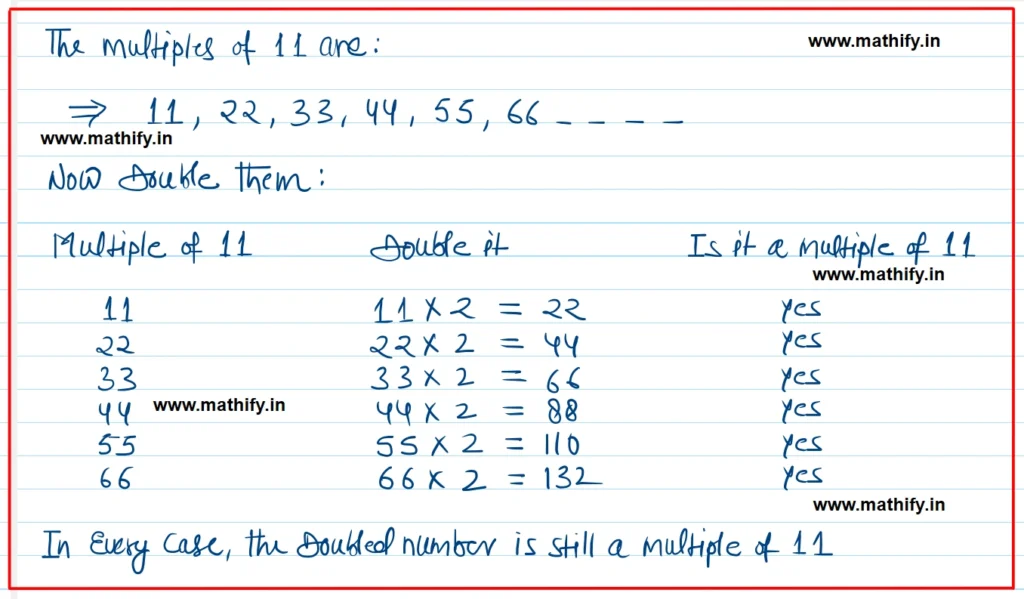 The multiples of 11 are:
www.mathify.in
⇒ 11, 22, 33, 44, 55, 66 - - - -
www.mathify.in
Now Double them:
Multiple of 11 Double it Is it a multiple of 11
www.mathify.in
11 11 × 2 = 22 yes
22 22 × 2 = 44 yes
33 33 × 2 = 66 yes
44 www.mathify.in 44 × 2 = 88 yes
55 55 × 2 = 110 yes
66 66 × 2 = 132 yes
www.mathify.in
In Every Case, the Doubled number is still a multiple of 11